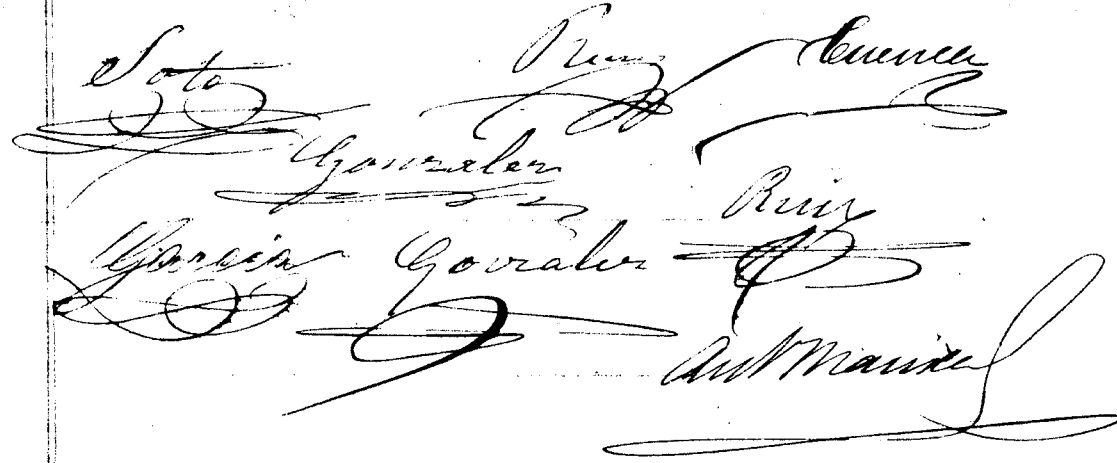 Soto Ruiz Cuenca
Gonzalez
Ruiz
Garcia Gonzalez
Ant Marín